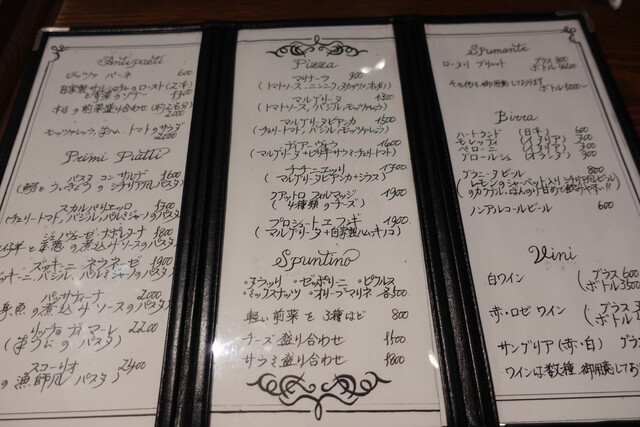 Antipasti
ピッツァ パーネ 600
自家製サルシッチャのロースト(2本)
1300
本日の前菜盛り合わせ(約2名分)
2,000
モッツァレッラ、トマトのサラダ
2,000
Primi Piatti
パスタ コン サルデ 1600
シチリア風パスタ)
1700
(チェリートマト、バジル、パルミジャーノのパスタ)
ジェノヴェーゼ ナポレターナ 1800
の煮込みソースのパスタ
ズッキーニ ネラネーゼ 1900
ッキーニ、バジル、パルミジャーノのパスタ
パッサティーナ 2,000
魚の煮込みソースのパスタ
リッチョ ディ マーレ 2200
(生うにのパスタ)
スコーリオ 2400
の漁師風パスタ)
Pizza
マリナーラ 900
(トマトソース、ニンニク、オレガノ)
マルゲリータ 1300
(トマトソース、バジル、モッツァレッラ)
マルゲリータビアンカ 1500
(チェリートマト、バジル、モッツァレッラ)
1600
(マルゲリータ+ピリ辛サラミ・チェリートマト)
チチニエッリ 1700
(マルゲリータビアンカ+シラス)
クアットロ フォルマッジ 1900
(4種類のチーズ)
プロシュート エ フンギ 1900
(マルゲリータ+自家製ハム・キノコ)
Spuntino
・ゼッポリーニ ・ピクルス
・ミックスナッツ ・オリーブマリネ 各500
軽い前菜を3種ほど 800
チーズ盛り合わせ 1500
サラミ盛り合わせ 1800
Spumante
ブリュット グラス 800
ボトル 4200
その他も御用意しております
ボトル 5000〜
Birra
ハートランド (日本) 600
モレッティ (イタリア) 700
ペローニ (イタリア) 700
グロールシュ (オランダ) 900
グラニータ ビール 800
(レモンのシャーベット入りシチリア風ビール
のカクテル。ほんのり甘めで飲みやすい!!)
ノンアルコールビール 600
Vini
白ワイン (グラス 600
ボトル 3500
赤・ロゼ ワイン (グラス
ボトル
サングリア (赤・白) グラス
ワインは数種、御用意してお